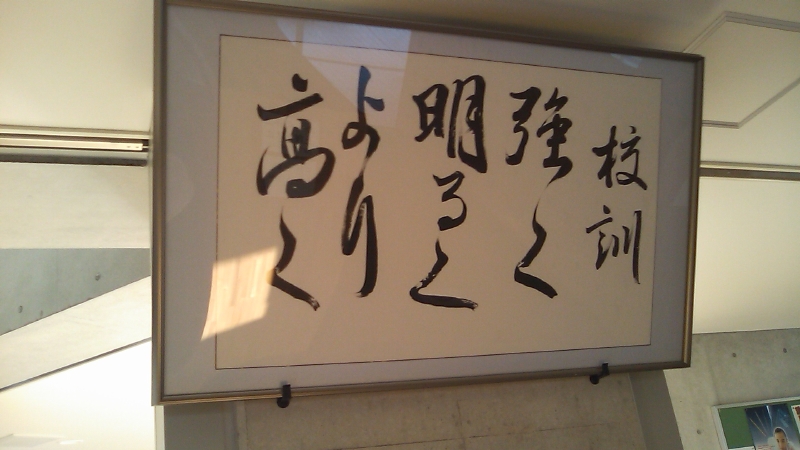 校訓
強く
明るく
より
高く